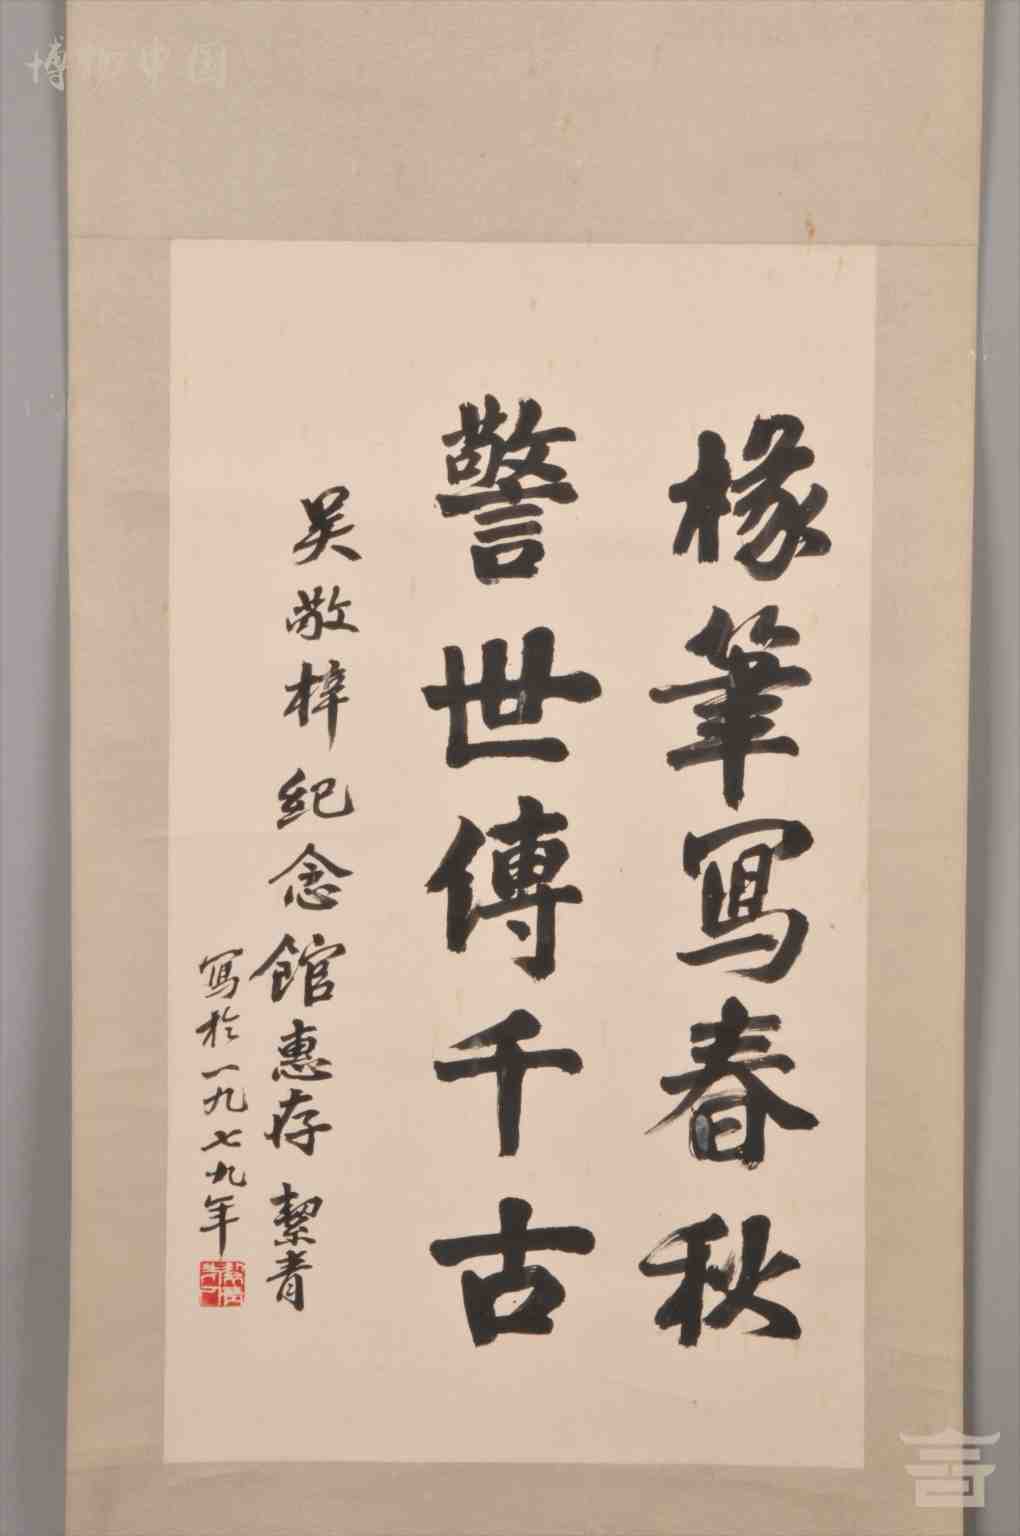 博物中国
椽筆寫春秋
警世傳千古
吴敬梓纪念館惠存 絜青
寫於一九七九年